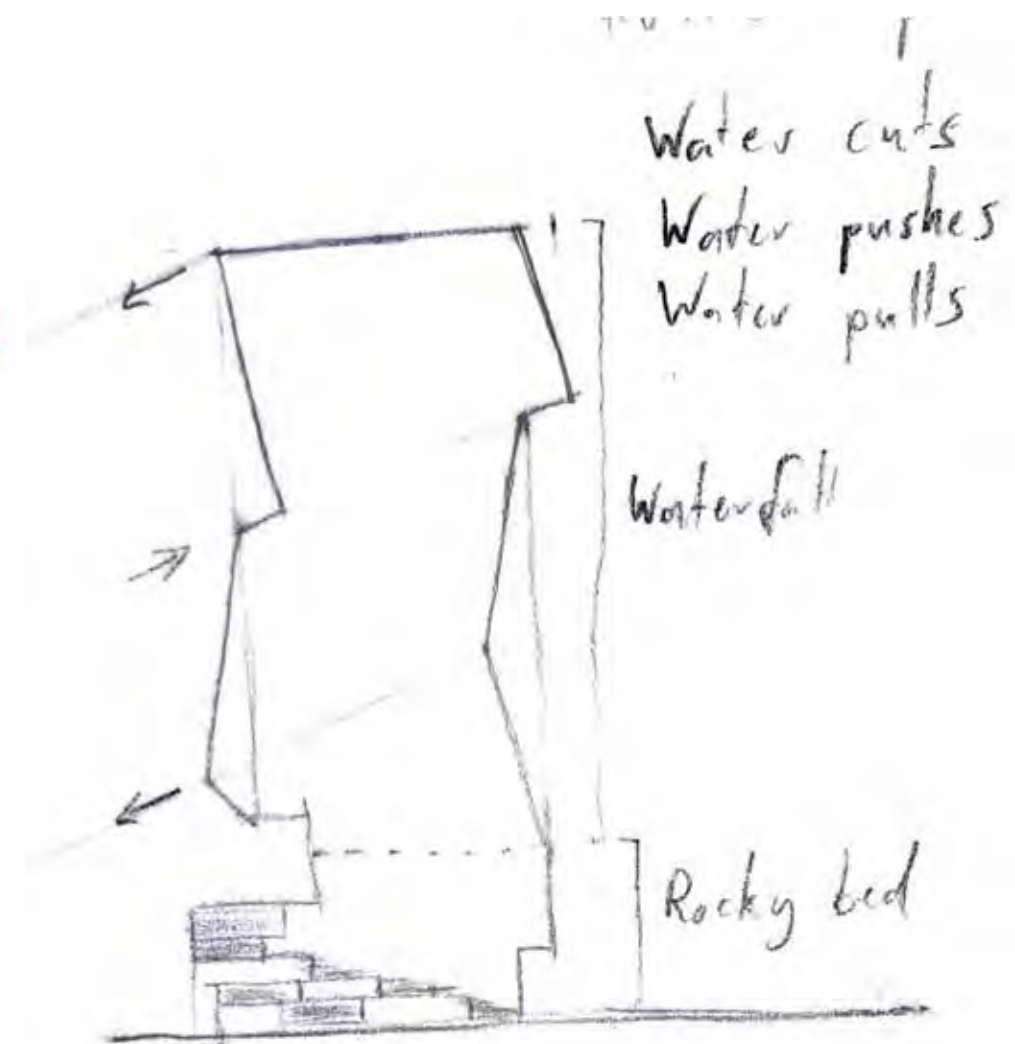 Water cuts
Water pushes
Water pulls
Waterfall
Rocky bed